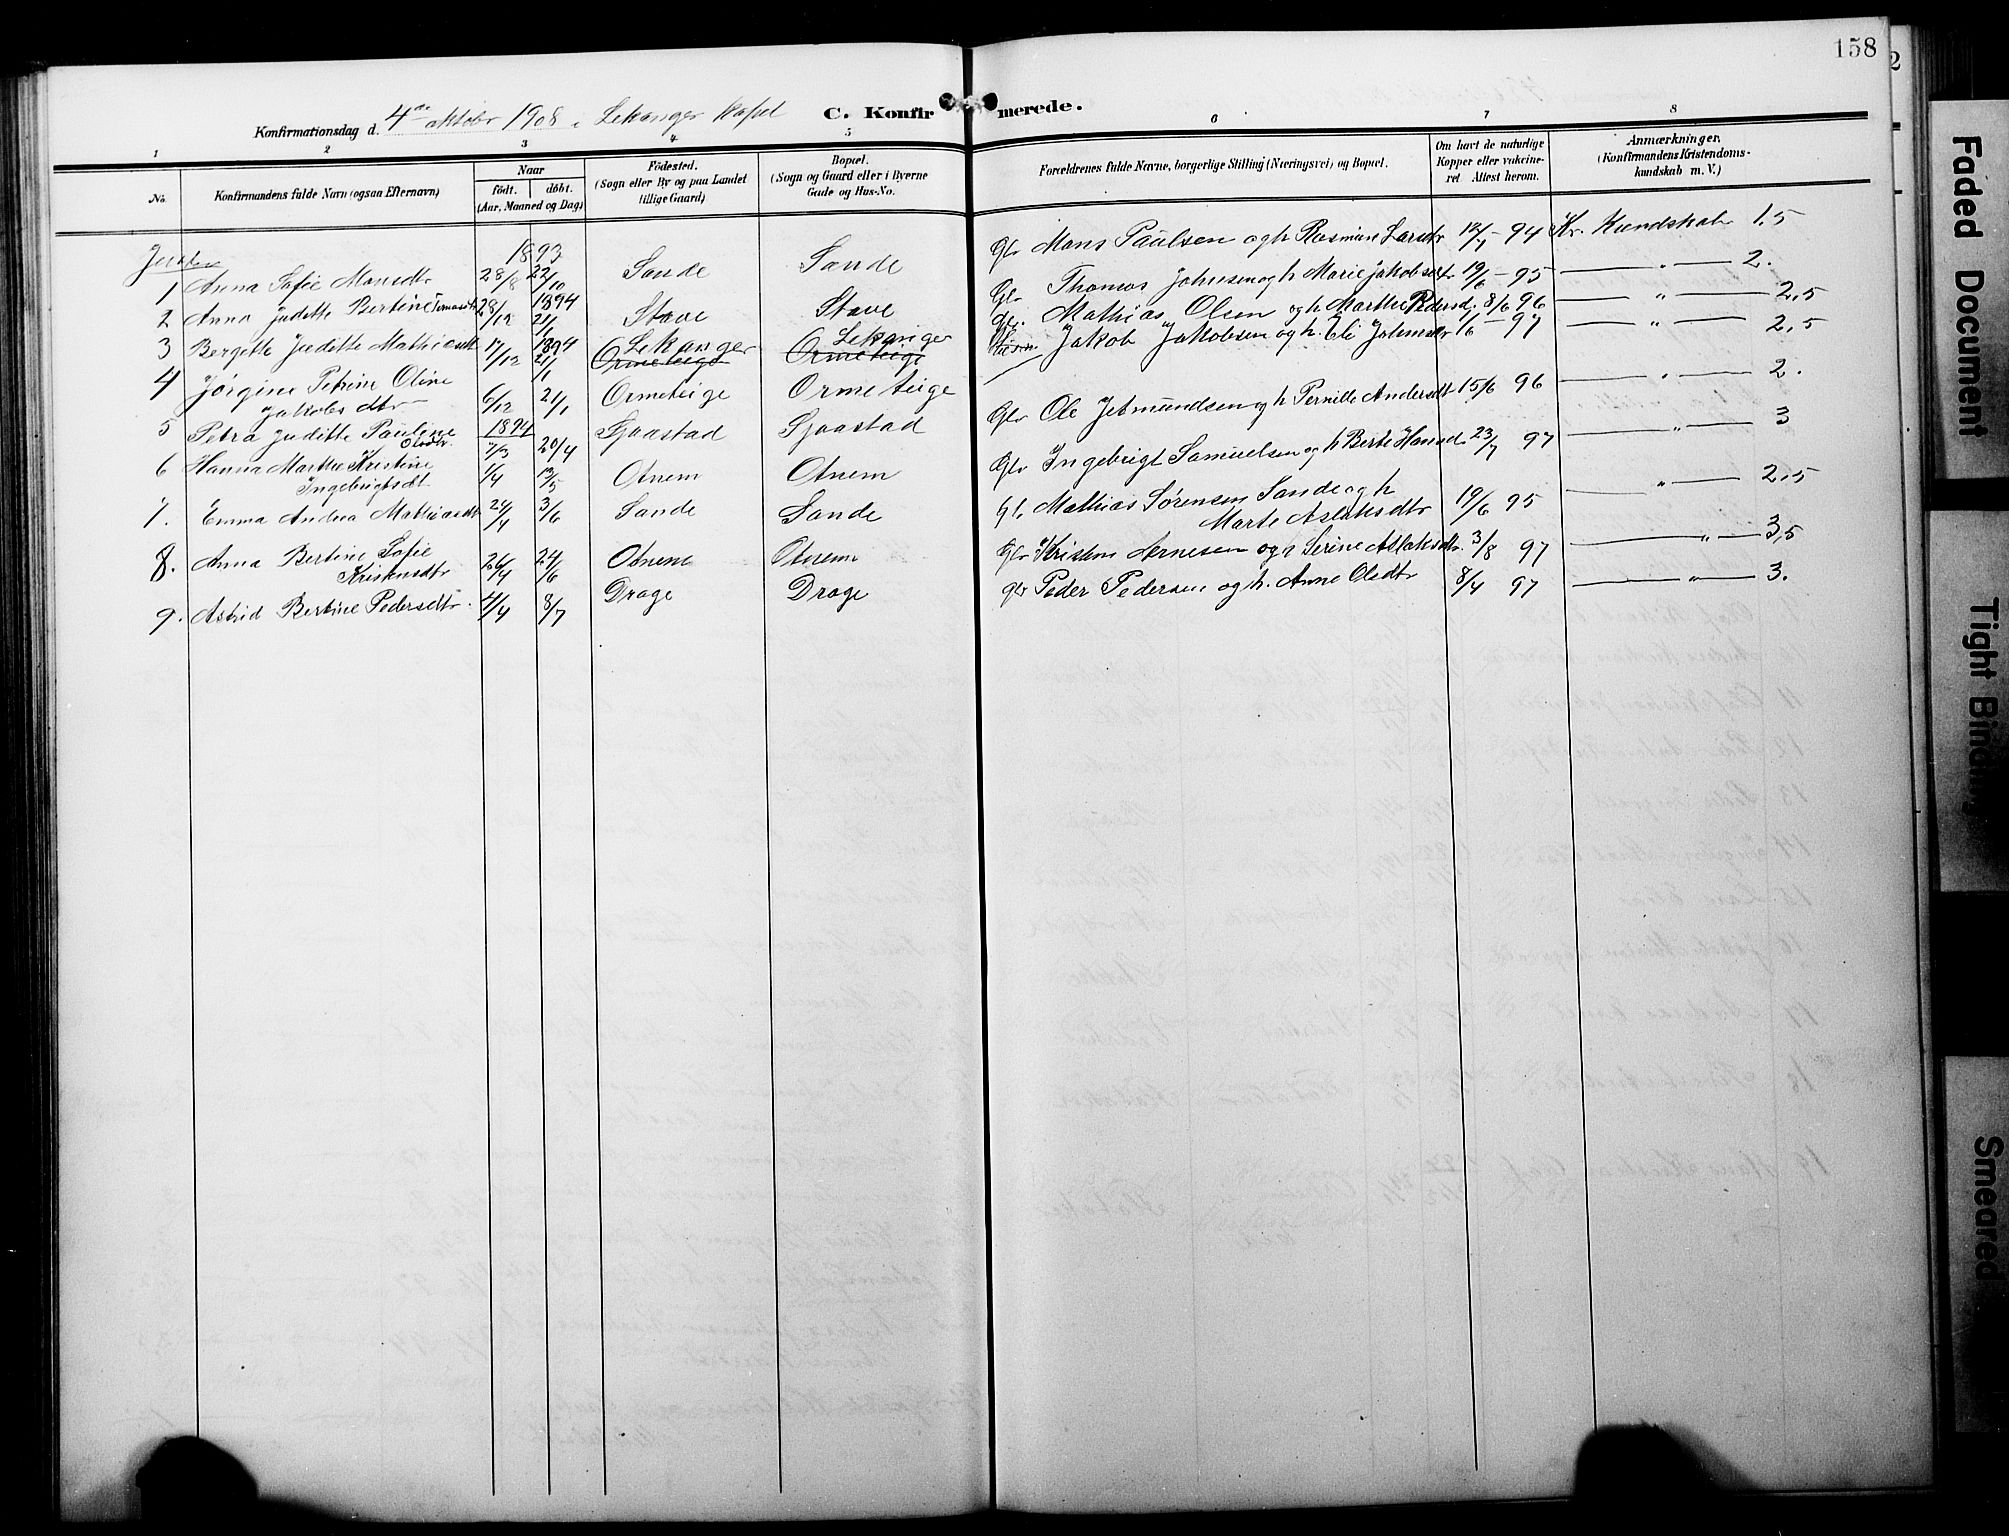 158
Konfirmationsdag d. 4de oktober 1908 i Lekanger Kapel C. Konfirmerede.
1 2 3 4 5 6 7 8
No. Konfirmandens fulde Navn (ogsaa Efternavn) Naar født. døbt. (Aar, Maaned og Dag) Fødested. (Sogn eller By og paa Landet tillige Gaard) Bopæl. (Sogn og Gaard eller i Byerne Gade og Hus-No. Forældrenes fulde Navne, borgerlige Stilling (Næringsvei) og Bopæl. Om havt de naturlige Kopper eller vakcineret Attest herom. Anmærkninger. (Konfirmandens Kristendomskundskab m. V.)
1893
1 Anna Sofie Monsdtr 28/8 22/10 Sande Sande Gbr Mons Paulsen og h Rasmine Larsdtr 12/7 - 94 Kr. Kundskab 1.5
2 Anna Juditte Bertine Tomasdtr 28/12 1894 21/1 Stave Stave Gbr Thomas Johnsen og h Marie Jakobsdt 19/6 - 95 — " — 2.
3 Bergitte Juditte Mathiasdt 17/12 1894 21/1 Lekanger Ormeteige Lekanger Ormeteige Gbr. Mathias Olsen og h Marthe Pedersd. 8/6 96 — " — 2,5
4 Jørgine Petrine Oline Jakobsdtr 6/12 21/1 Ormeteige Ormeteige Jakob Jakobsen og h. Eli Johnsdtr 1/6 - 97 — " — 2,5
1894
5 Petra Juditte Pauline Olsdtr. 7/3 20/4 Sjaastad Sjaastad Gbr Ole Jetmundsen og h Pernille Andersdt 15/6 96 — " — 2.
6 Hanna Marthe Kristine Ingebrigtsdt 1/4 13/5 Otnem Otnem Gbr Ingebrigt Samuelsen og h Berte Hansd. 23/7 97 — " — 3
7. Emma Andrea Mathiasdt 24/4 3/6 Sande Sande Gbr Mathias Sørensen Sande og h Marte Aslaksdtr 19/6 95 — " — 2.5
8. Anna Bertine Sofie Kristensdtr 26/4 24/6 Otnem Otnem Gbr Kristen Arnesen og h Serine Aslaksdtr. 3/8 97 — " — 3,5
9. Astrid Bertine Pedersdtr. 4/4 8/7 Drage Drage gbr Peder Pedersen og h. Anne Olsdtr 8/4 97 — " — 3.
Faded Document
Tight Binding
Smeared